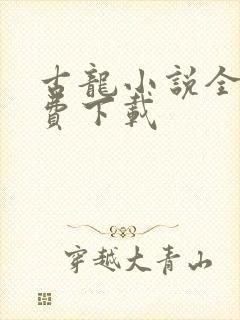 古龍小說全
費下載
穿越大青山